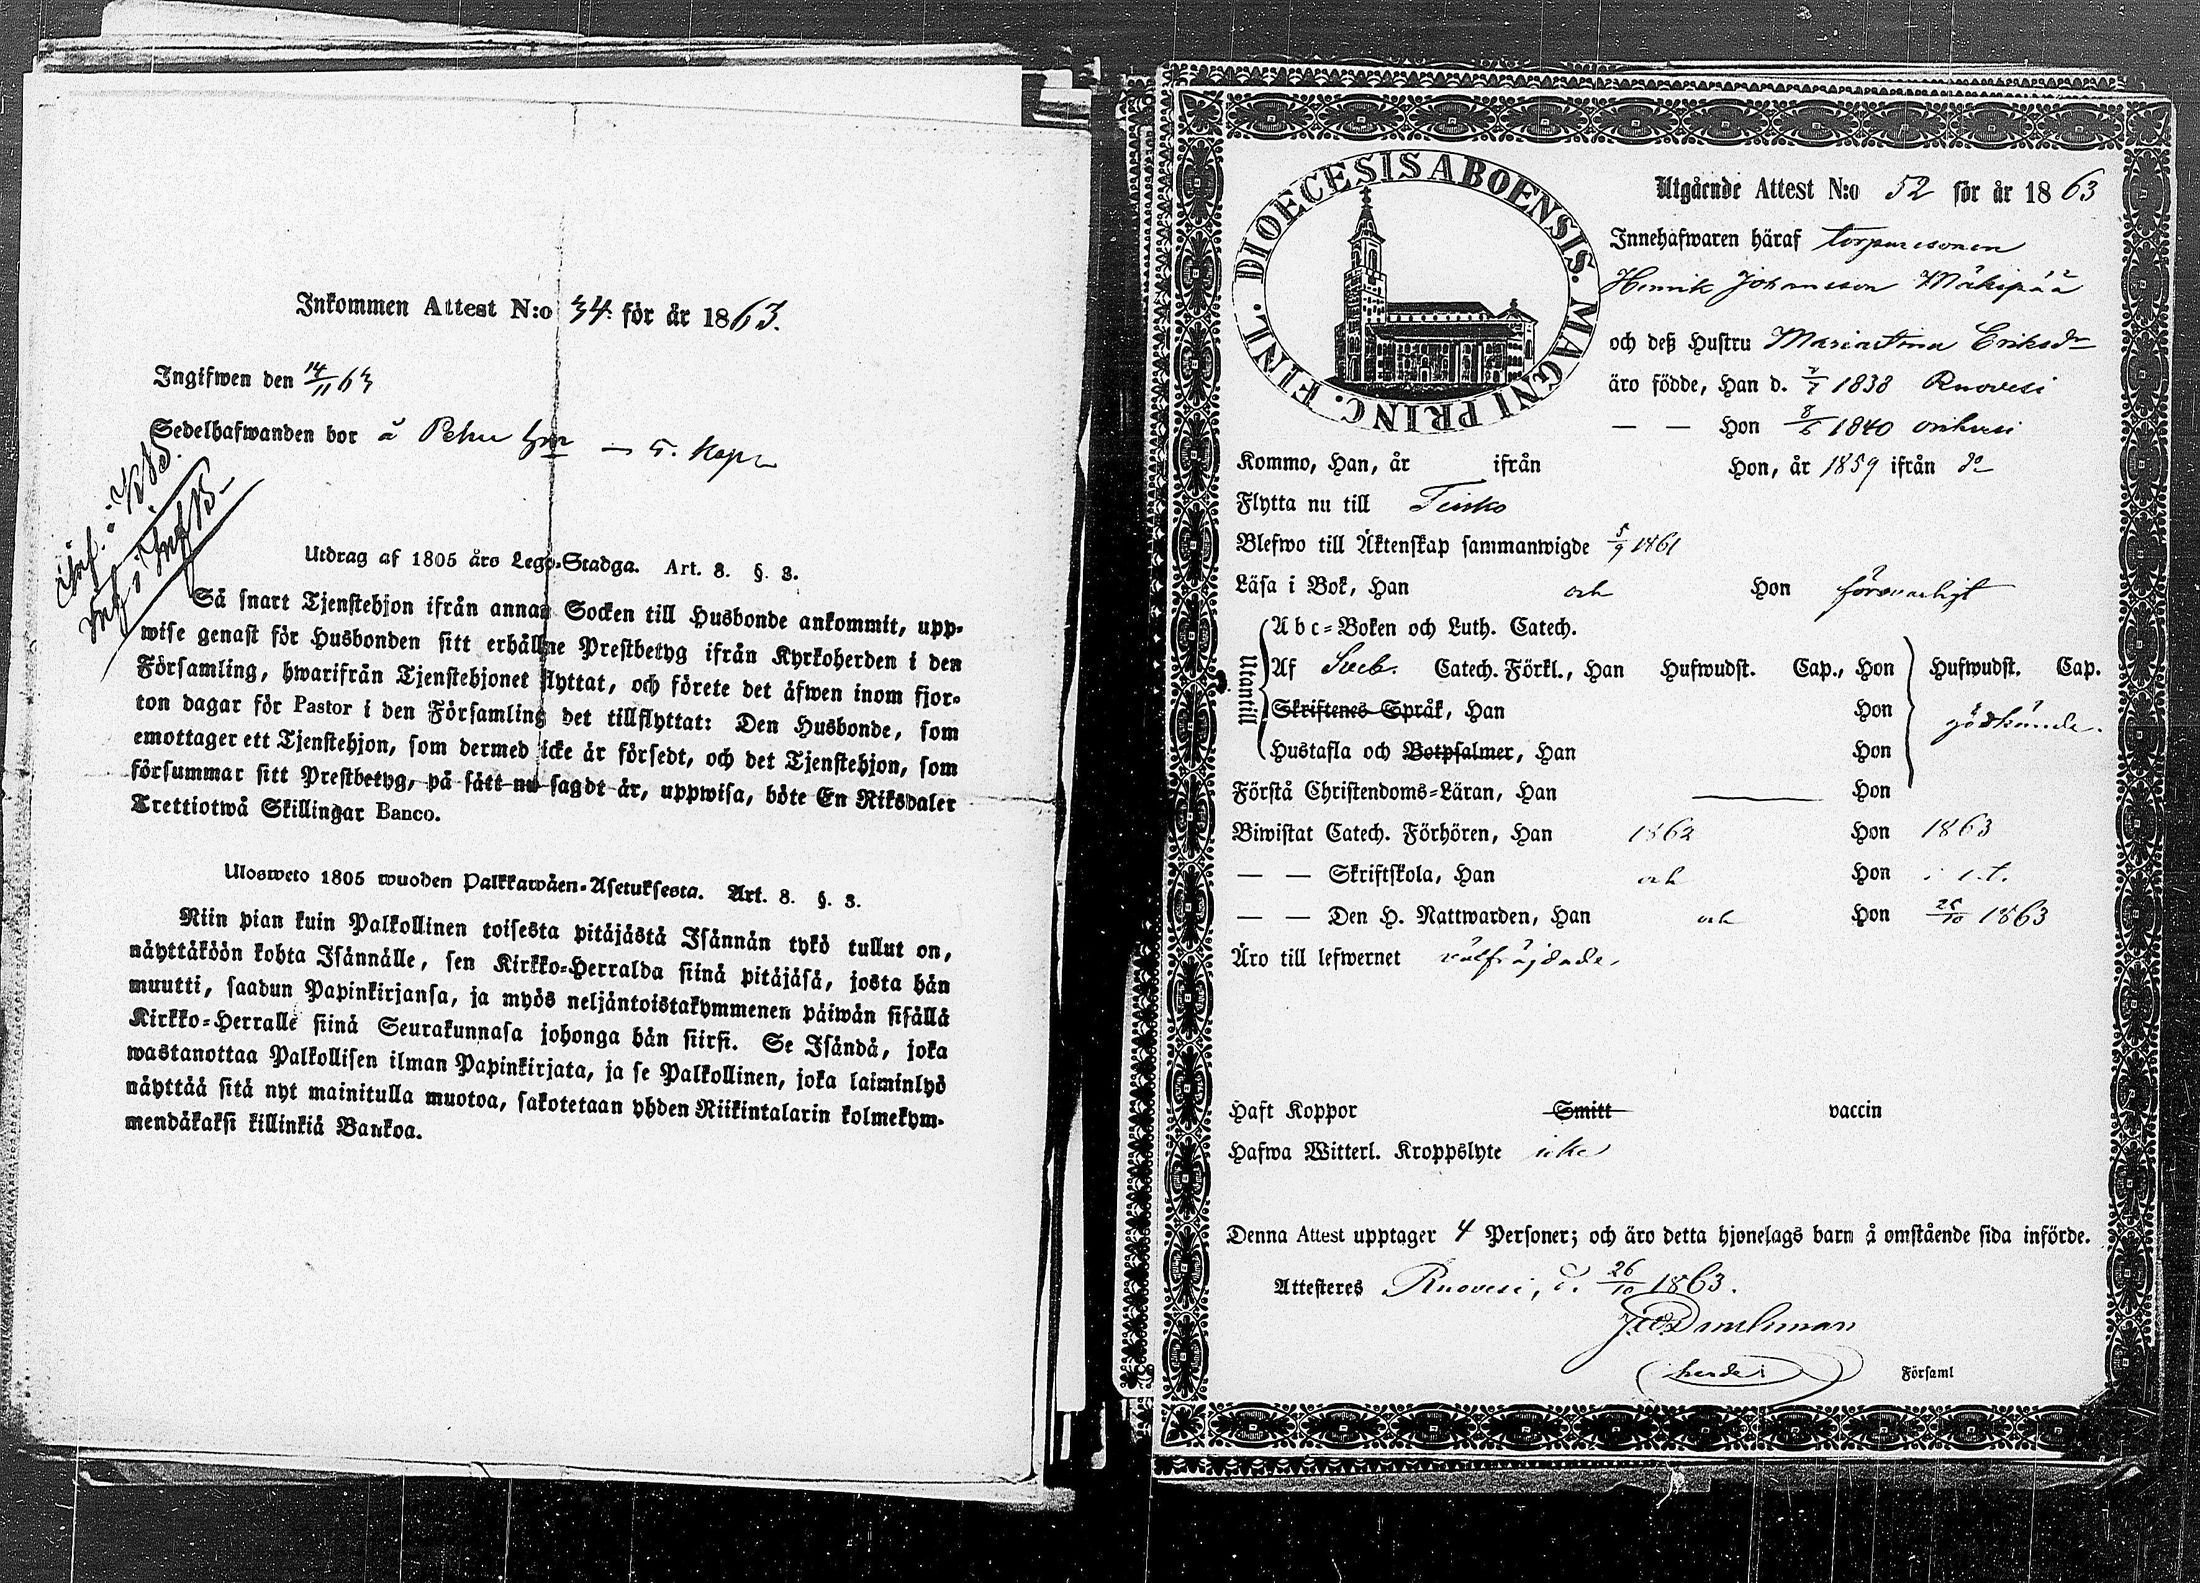 Inkommen Attest N:o 34. för år 1863.
Ingifwen den 14/11 63
Sedelhafwanden bor å
Utdrag af 1805 års Lego-Stadga. Art. 8. §. 3.
Så snart Tjenstehjon ifrån annan Socken till Husbonde ankommit, upp-
wise genast för Husbonden sitt erhållne Prestbetyg ifrån Kyrkoherden i den
Församling, hwarifrån Tjenstehjonet flyttat, och förete det äfwen inom fjor-
ton dagar för Pastor i den Församling det tillflyttat: Den Husbonde, som
emottager ett Tjenstehjon, som dermed icke är försedt, och det Tjenstehjon, som
försummar sitt Prestbetyg, på sätt nu sagdt är, uppwisa, böte En Riksdaler
Trettiotwå Skillingar Banco.
Ulosweto 1805 wuoden Palkkawäen-Asetuksesta. Art. 8. §. 3.
Niin pian kuin Palkollinen toisesta pitäjästä Isännän tykö tullut on,
näyttäköön kohta Isännälle, sen Kirkko-Herralda siinä pitäjäsä, josta hän
muutti, saadun Papinkirjansa, ja myös neljäntoistakymmenen päiwän sisällä
Kirkko-Herralle siinä Seurakunnasa johonga hän siirsi. Se Isändä, joka
wastanottaa Palkollisen ilman Papinkirjata, ja se Palkollinen, joka laiminlyö
näyttää sitä nyt mainitulla muotoa, sakotetaan yhden Riikintalarin kolmekym-
mendäkaksi killinkiä Bankoa.
DIOECESIS ABOENSIS. MAGNI PRINC. FINL.
Utgående Attest N:o 52 för år 1863
Innehafwaren häraf torparesonen
Henrik Johansson Mäkipää
och deß Hustru Mariastina Eriksdr
äro födde, Han d. 1838 Ruovesi
— — Hon 1840 orihvesi
Kommo, Han, år ifrån Hon, år 1859 ifrån do
Flytta nu till Teisko
Blefwo till Äktenskap sammanwigde 5/9 1861
Läsa i Bok, Han och Hon försvarligt
Utantill
Abc-Boken och Luth. Catech.
Af Sveb. Catech. Förkl., Han Hufwudst. Cap., Hon Hufwudst. Cap.
Skriftenes Språk, Han Hon godkände.
Hustafla och Botpsalmer, Han Hon
Förstå Christendoms-Läran, Han Hon
Biwistat Catech. Förhören, Han 1862 Hon 1863
— — Skriftskola, Han och Hon
— — Den H. Nattwarden, Han och Hon 1863
Äro till lefwernet välfräjdade.
Haft Koppor Smitt vaccin
Hafwa Witterl. Kroppslyte icke
Denna Attest upptager 4 Personer; och äro detta hjonelags barn å omstående sida införde.
Attesteres Ruovesi, d. 26/10 1863.
Församl